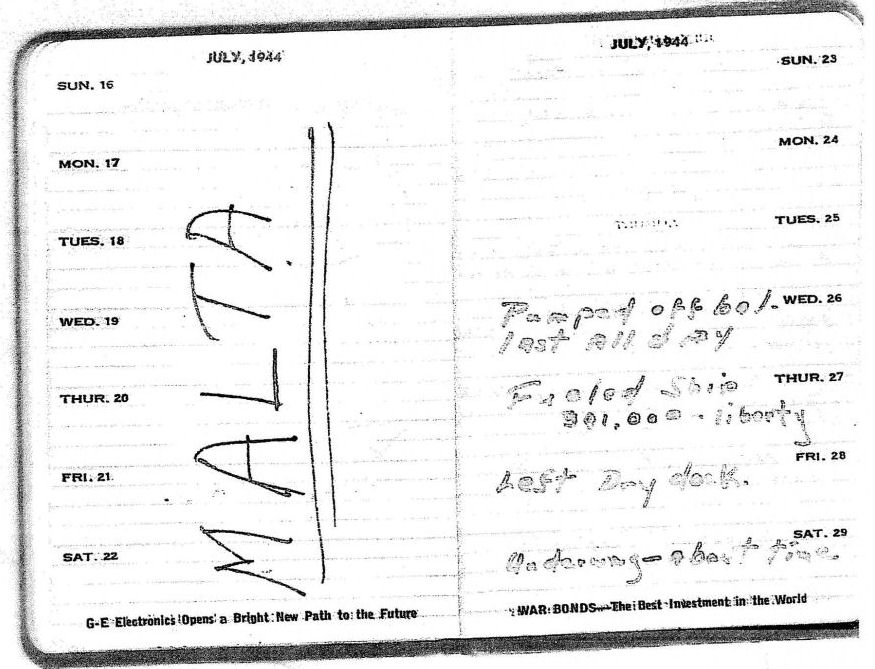 JULY, 1944
SUN. 16
MON. 17
TUES. 18
WED. 19
THUR. 20
FRI. 21
SAT. 22
MALTA
G-E Electronics Opens a Bright New Path to the Future
JULY, 1944
SUN. 23
MON. 24
TUES. 25
WED. 26
Pumped off bal-
last all day
THUR. 27
Fueled Ship
liberty
FRI. 28
Left Dry dock.
SAT. 29
Underway - about time.
WAR BONDS—The Best Investment in the World